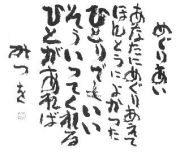 めぐりあい
あなたにめぐりあえて
ほんとうによかった
ひとりでもいい
そういってくれる
ひとがあれば
みつを